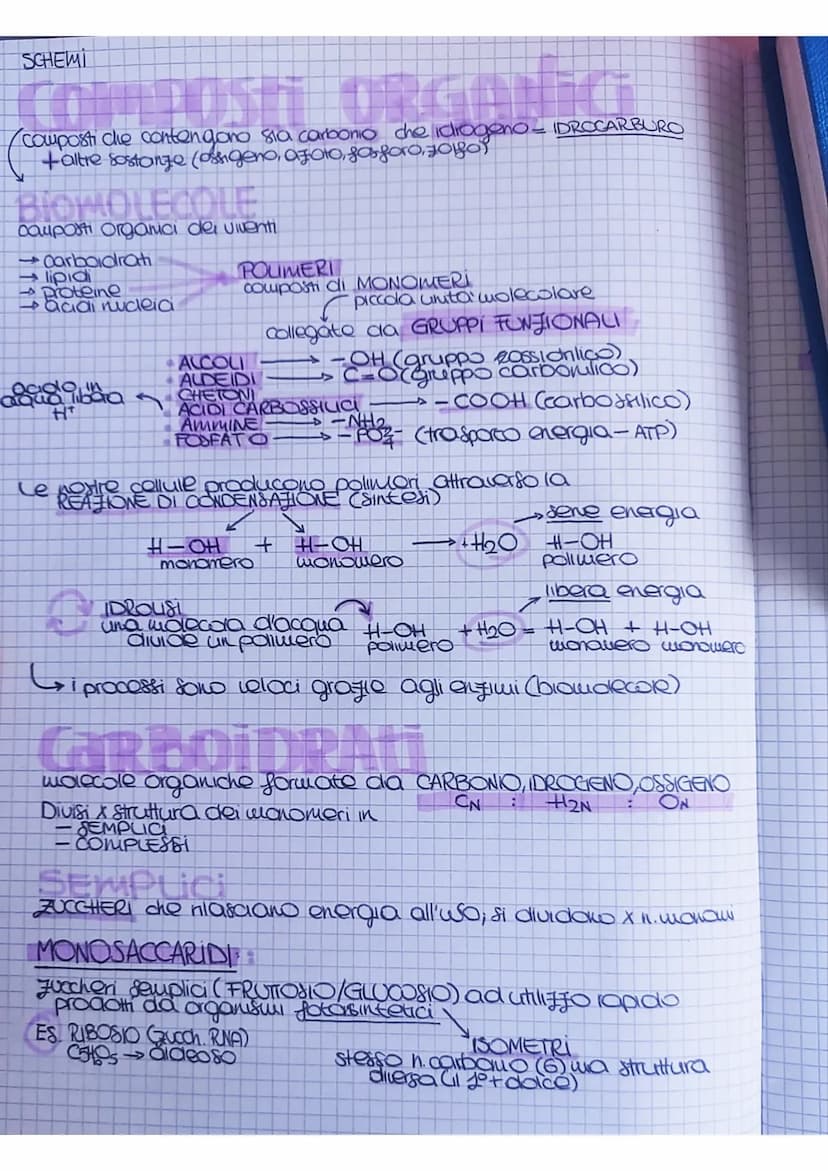 SCHEMI
COMPOSTI ORGANICI
composti che contengono sia carbonio che idrogeno = IDROCARBURO
+ altre sostanze (ossigeno, azoto, fosforo, zolfo)
BIOMOLECOLE
composti organici dei viventi
→ carboidrati
→ lipidi
→ proteine
→ acidi nucleici
POLIMERI
composti di MONOMERI
piccola unità molecolare
collegate da GRUPPI FUNZIONALI
• ALCOLI → -OH (gruppo ossidrilico)
• ALDEIDI → C=O (gruppo carbonilico)
• CHETONI
acido in acqua libera H⁺
• ACIDI CARBOSSILICI → -COOH (carbossilico)
• AMMINE → -NH2
• FOSFATO → -PO₄²⁻ (trasporto energia - ATP)
Le nostre cellule producono polimeri attraverso la
REAZIONE DI CONDENSAZIONE (sintesi)
→ serve energia
H-OH + H-OH → + H2O H-OH
monomero monomero polimero
→ libera energia
IDROLISI
una molecola d'acqua
divide un polimero
H-OH + H2O = H-OH + H-OH
polimero monomero monomero
↳ i processi sono veloci grazie agli enzimi (biomolecole)
CARBOIDRATI
molecole organiche formate da CARBONIO, IDROGENO, OSSIGENO
CN : H2N : ON
Divisi x struttura dei monomeri in
- SEMPLICI
- COMPLESSI
SEMPLICI
ZUCCHERI che rilasciano energia all'uso; si dividono x n. monomi
MONOSACCARIDI:
zuccheri semplici (FRUTTOSIO/GLUCOSIO) ad utilizzo rapido
prodotti da organismi fotosintetici
ES. RIBOSIO (zucch. RNA)
C5H10O5 → aldeoso
ISOMETRI
stesso n. carbonio (6) ma struttura
diversa (il 1° + dolce)